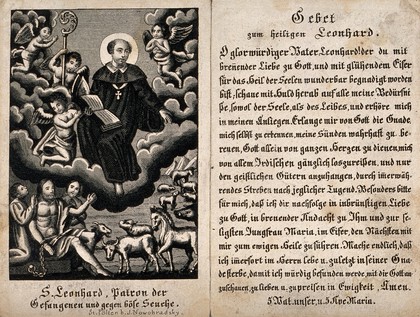 S. Leonhard, Patron der
Gefangenen und gegen böse Seuche.
Gebet
zum heiligen Leonhard.
O glorwürdiger Vater Leonhard! der du mit
brenender Liebe zu Gott, und mit glühendem Eifer
für das Heil der Seelen wunderbar begnadigt worden
bist, schaue mit Huld herab auf alle meine Bedürfniß
ße, sowol der Seele, als des Leibes, und erhöre mich
in meinen Anliegen. Erlange mir von Gott die Gnade,
mich selbst zu erkennen, meine Sünden wahrhaft zu be-
reuen, Gott allein von ganzen Herzen zu dienen, mich
von allem Irdischen gänzlich loszureißen, und nur
den geistlichen Gütern anzuhangen, durch imerwäh-
rendes Streben nach jeglicher Tugend. Besonders bitte
für mich, daß ich dir nachfolge in inbrünstiger Liebe
zu Gott, in brenender Andacht zu Ihm und zur se-
ligsten Jungfrau Maria, im Eifer, den Nächsten mit
mir zum ewigen Heile zu führen. Mache endlich, daß
ich imerfort im Herrn lebe u. zuletzt in seiner Gna-
de sterbe, damit ich würdig befunden werde, mit dir Gott an
zuschauen, zu lieben u. zu preisen in Ewigkeit, Amen.
5 Vat. unser, u. 5 Ave Maria.